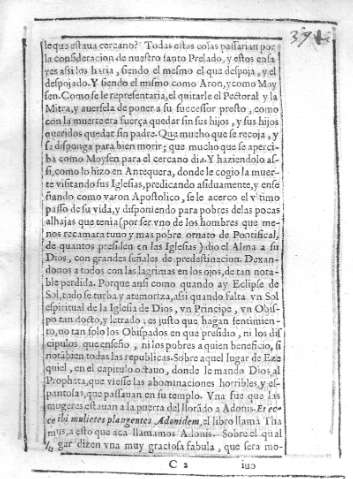 le que estaua cercano? Todas estas cosas passarian por
la consideracion de nuestro santo Prelado, y estos casa
yes assi los haria, siendo el mesmo el que despoja, y el
despojado. Y siendo el mismo como Aron, y como Moy
sen. Como se le representaria, el quitarle el Pectoral y la
Mitra, y auersela de poner a su successor presto, como
con la muerte era fuerça quedar sin sus hijos, y sus hijos
queridos quedar sin padre. Que mucho que se recoja, y
se disponga para bien morir; que mucho que se aperci-
ba como Moysen para el cercano dia. Y haziendolo as-
si, como lo hizo en Antequera, donde le cogio la muer-
te visitando sus Iglesias, predicando asiduamente, y ense
ñando como varon Apostolico, se le acerco el vltimo
passo de su vida, y disponiendo para pobres de las pocas
alhajas que tenia (por ser vno de los hombres que me-
nos recamara tuuo y mas pobre ornato de Pontifical,
de quantos presiden en las Iglesias) dio el Alma a su
Dios, con grandes señales de predestinacion. Dexan-
donos a todos con las lagrimas en los ojos, de tan nota-
ble perdida. Porque ansi como quando ay Eclipse de
Sol, todo se turba y atemoriza, assi quando falta vn Sol
espiritual de la Iglesia de Dios, vn Principe, vn Obis-
po tan docto, y letrado, es justo que hagan sentimien-
to, no tan solo los Obispados en que presidio, ni los dis
cipulos que enseño, ni los pobres a quien beneficio, si
no tabien todas las republicas. Sobre aquel lugar de Eze
quiel, en el capitulo octauo, donde le manda Dios al
Propheta, que viesse las abominaciones horribles, y es-
pantosas, que passauan en su templo. Vna fue que las
mugeres estauan a la puerta del llorado a Adonis. Et ec-
ce ibi mulieres plangentes Adonidem, el libro llama Tha
mus, a esto que aca llamamos Adonis. Sobre el qual
lugar dizen vna muy graciosa fabula, que sera mo-
C 2